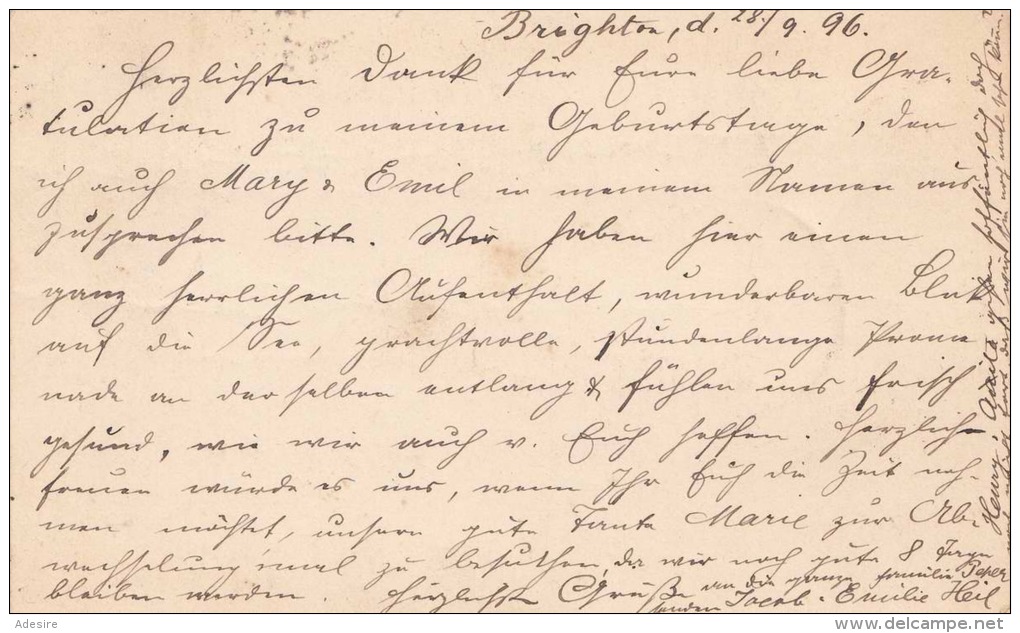 Brighton, d. 28./9. 96.
Herzlichsten Dank für Eure liebe Gra-
tulation zu meinem Geburtstage, den
ich auch Mary & Emil in meinem Namen aus
zusprechen bitte. Wir haben hier einen
ganz herrlichen Aufenthalt, wunderbaren Blick
auf die See, prachtvolle, stundenlange Prome
nade an derselben entlang & fühlen uns frisch
gesund, wie wir auch v. Euch hoffen. Herzlich
freuen würde es uns, wenn Ihr Euch die Zeit neh-
men möchtet, unsere gute Tante Marie zur Ab-
wechselung 'mal zu besuchen, da wir noch gute 8 Tage
bleiben werden. Herzlichste Grüße an die ganze Familie
senden Jacob & Emilie Heil
Henry & gehen hoffentlich doch